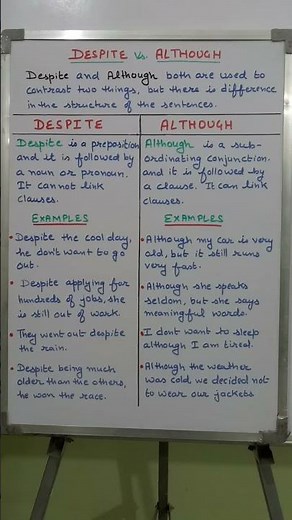 DESPITE Vs. ALTHOUGH
Despite and Although both are used to
contrast two things, but there is difference
in the structure of the sentences.
DESPITE
Despite is a preposition
and it is followed by
a noun or pronoun.
It cannot link
clauses.
EXAMPLES
• Despite the cool day,
he don't want to go
out.
• Despite applying for
hundreds of jobs, she
is still out of work.
• They went out despite
the rain.
• Despite being much
older than the others,
he won the race.
ALTHOUGH
Although is a sub-
ordinating conjunction,
and it is followed by
a clause. It can link
clauses.
EXAMPLES
• Although my car is very
old, but it still runs
very fast.
• Although she speaks
seldom, but she says
meaningful words.
• I dont want to sleep
although I am tired.
• Although the weather
was cold, we decided not
to wear our jackets